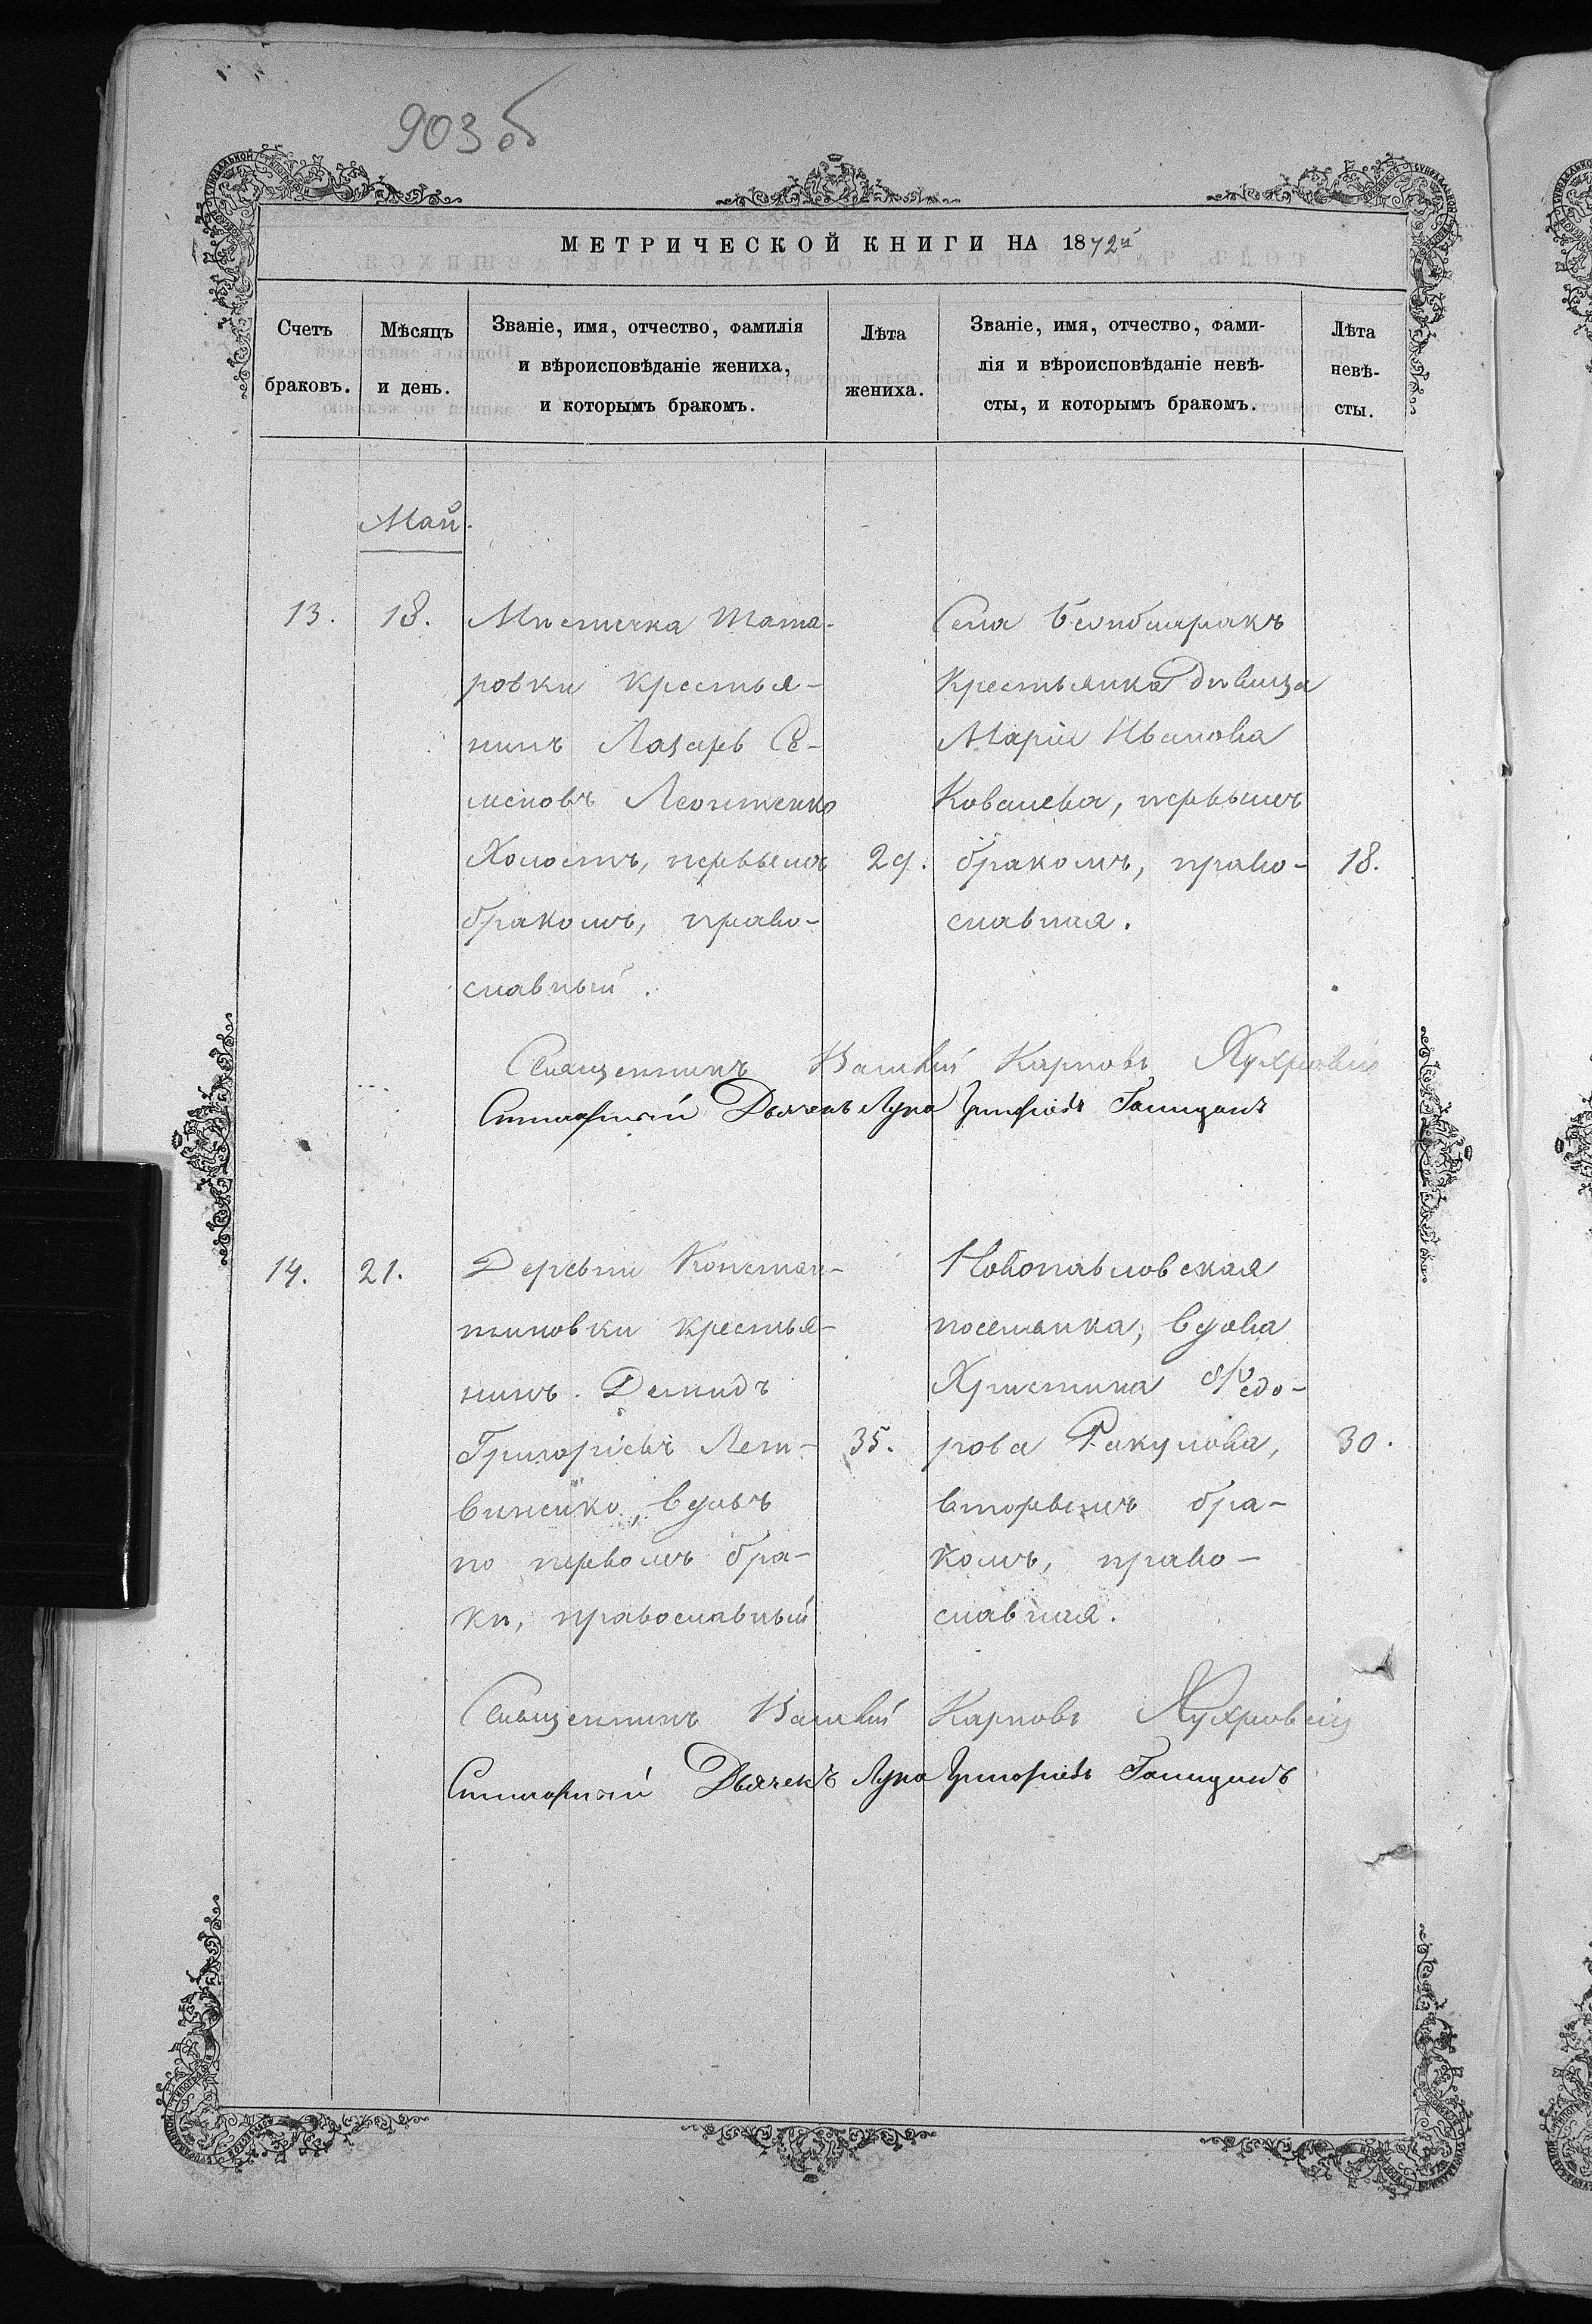 903 об
МЕТРИЧЕСКОЙ КНИГИ НА 1872й
Счетъ браковъ.
Мѣсяцъ и день.
Званіе, имя, отчество, фамилія
и вѣроисповѣданіе жениха,
и которымъ бракомъ.
Лѣта жениха.
Званіе, имя, отчество, фами-
лія и вѣроисповѣданіе невѣ-
сты, и которымъ бракомъ.
Лѣта невѣ-
сты.
Май.
13.
18.
Мѣстечка Тата-
ровки крестья-
нинъ Лазарь Се-
меновъ Леонтенко
Холостъ, первымъ
бракомъ, право-
славный.
29.
Села Белибайракъ
Крестьянка Дѣвица
Марія Иванова
Ковалева, первымъ
бракомъ, право-
славная.
18.
Священникъ Василій Карповъ
Дьячекъ Лука Григорьевъ
14.
21.
Деревни Констан-
тиновки крестья-
нинъ Демидъ
Григоріевъ Лит-
виненко, вдовъ
по первомъ бра-
кѣ, православный
35.
Новопавловская
поселянка, вдова
Христина Ѳедо-
рова Ракулова,
вторымъ бра-
комъ, право-
славная.
30.
Священникъ Василій Карповъ
Дьячекъ Лука Григорьевъ